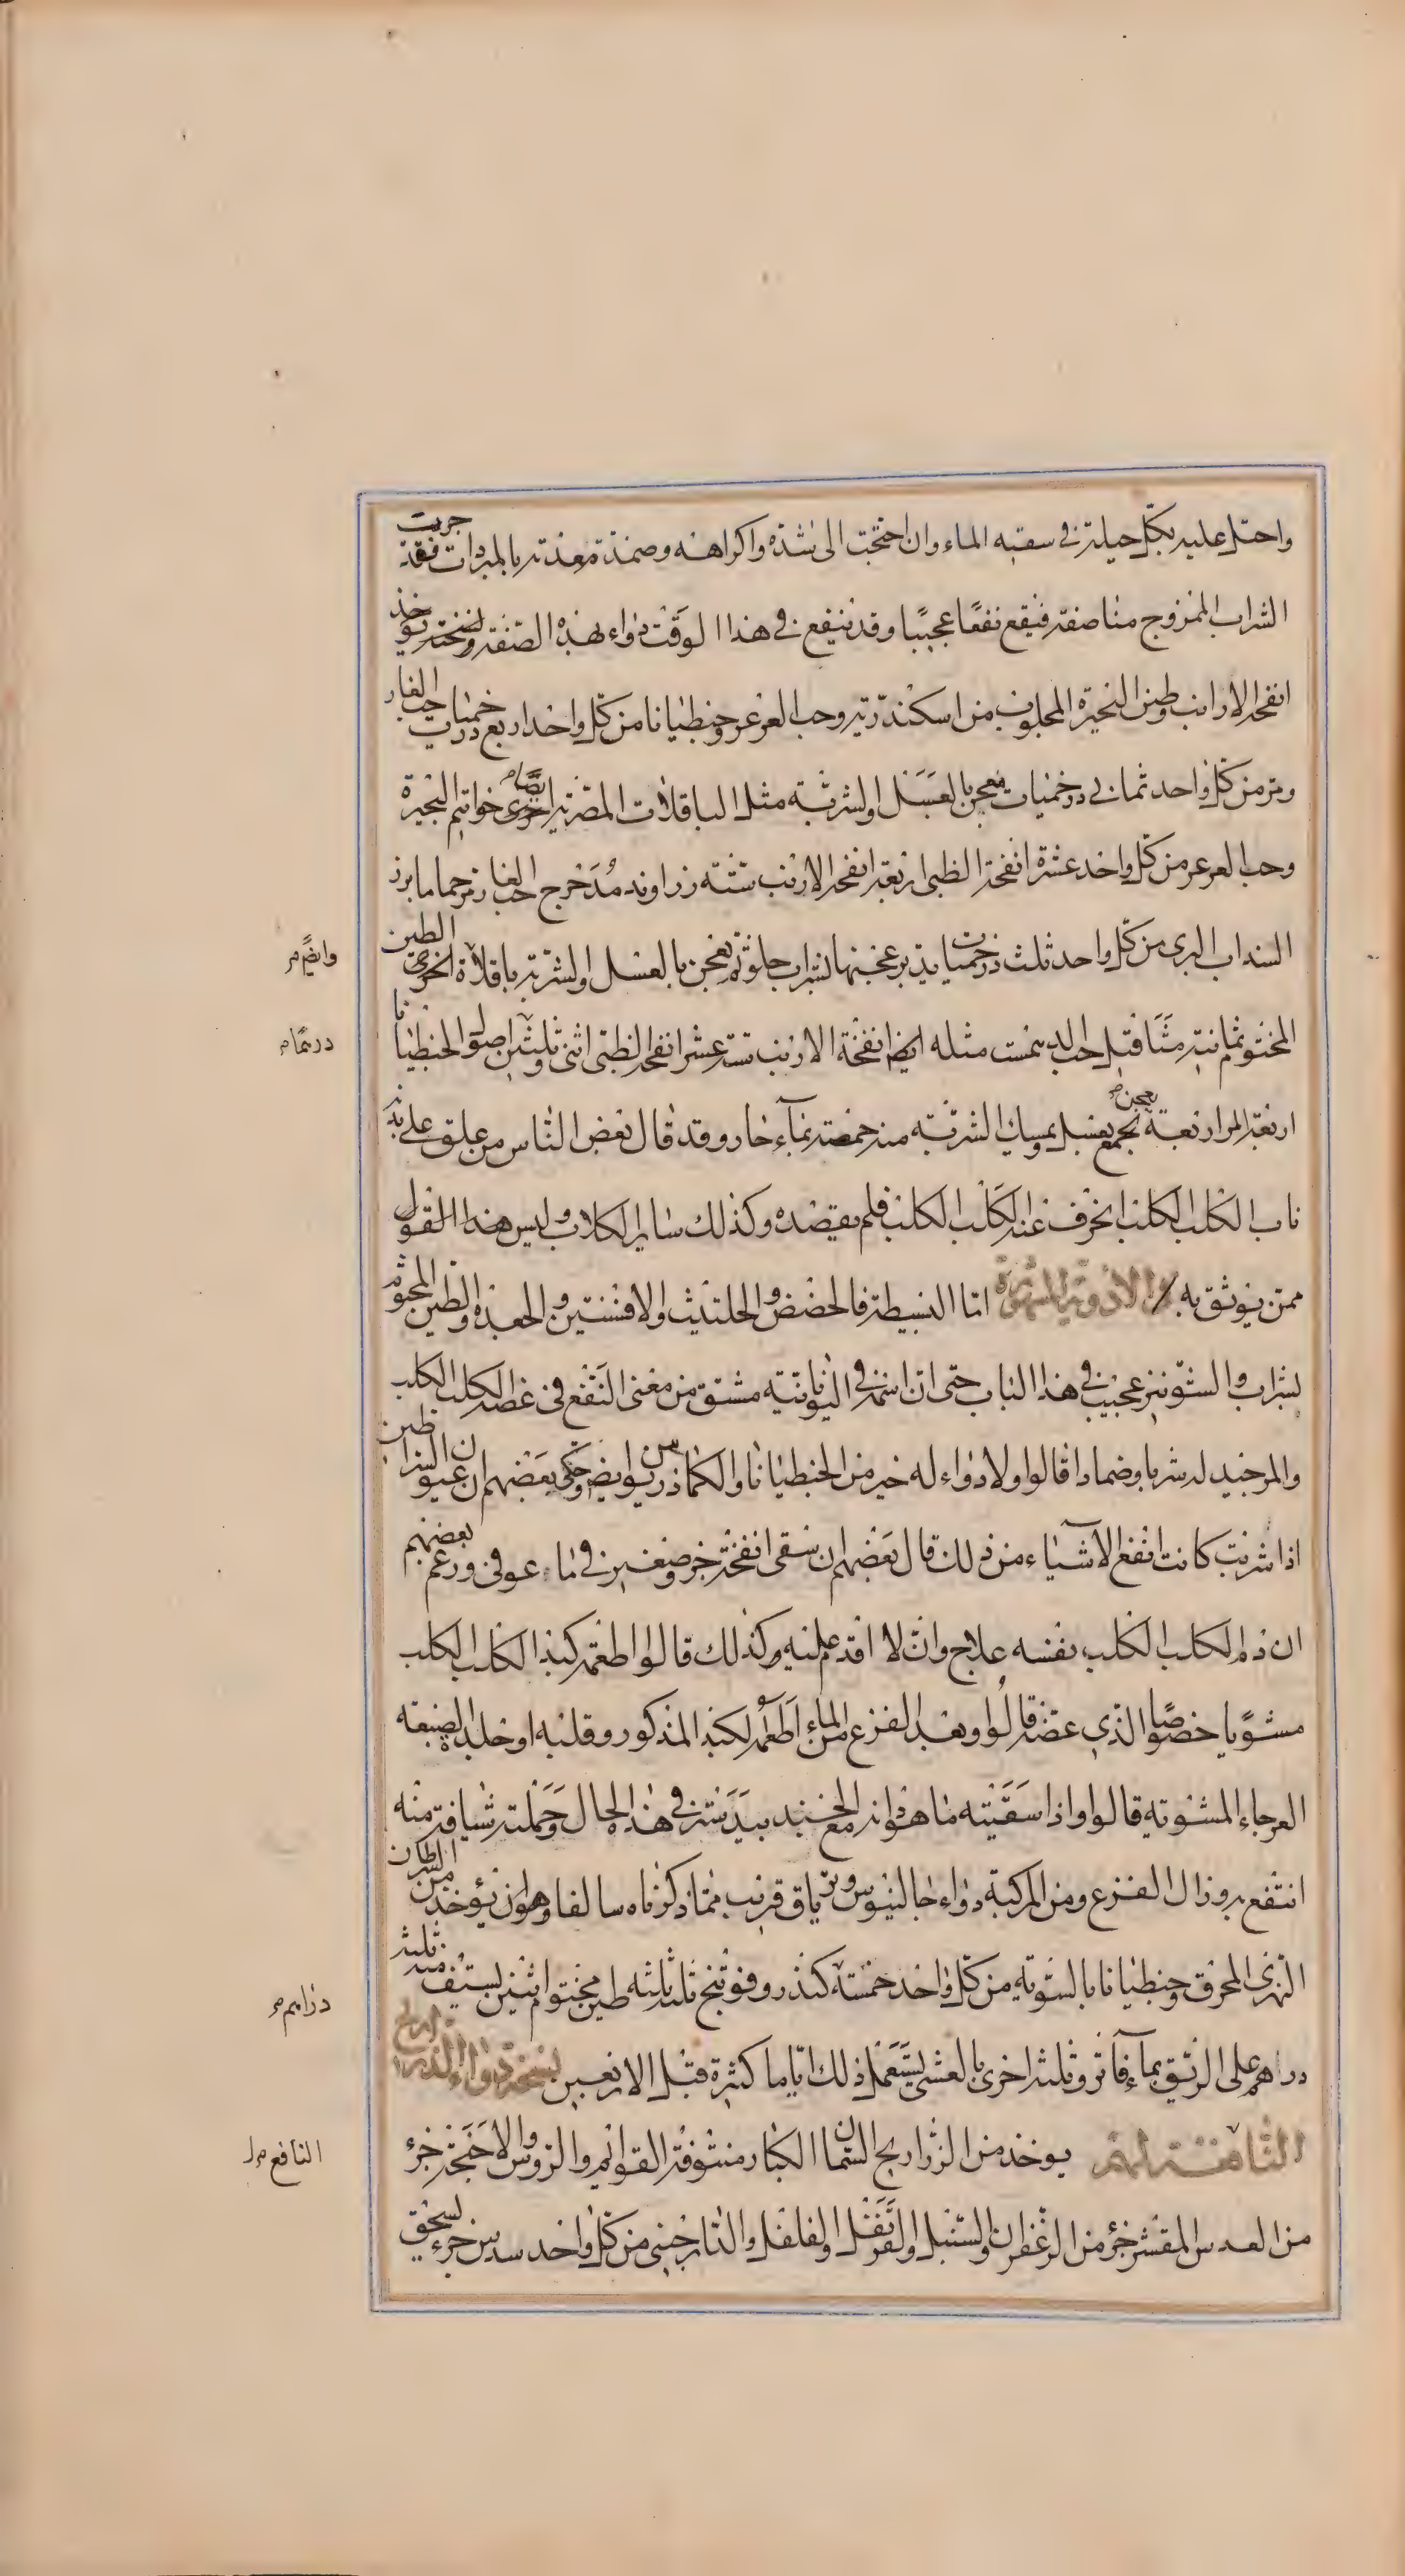 واحتل عليه بكل حيلة في سقيه الماء وان احتجت الى شده واكراهه وضمدة معدته بالمبردات فقد جربت
الشراب الممزوج مناصفة فيقع نفعًا عجيبًا وقد ينفع في هذا الوقت دواء بهذه الصفة ونسخته يوخذ
انفحة الارانب وطين البحيرة المجلوب من اسكندرية وحب العرعر وجنطيانا من كل واحد اربع درخميات حب الغار
ومر من كل واحد ثماني درخميات يعجن بالعسل والشربة مثل الباقلات المصرية ايضًا اخرى خواتيم البحيرة
وحب العرعر من كل واحد عشرة انفحة الظبى اربعة انفحة الارنب ستة زراوند مدحرج حب الغار مر حماما بزر
السذاب البرى من كل واحد ثلث درخميات يدبر عجنها بشراب حلو ثم يعجن بالعسل والشربة باقلاة اخرى الطين
المختوم ثمانية مثاقيل حب البلسان مثله ايضا انفحة الارنب ستة عشر انفحة الظبى اثنى وثلثين اصول الجنطيانا
اربعة المر اربعة يجمع يعجن بعسل ويمسك الشربة منه حمصة بماء حار وقد قال بعض الناس من علق على بدنه
ناب الكلب الكلب انحرف عنه الكلب الكلب فلم يقصده وكذلك سائر الكلاب وليس هذا القول
ممن يوثق به الادوية المشروبة اما البسيطة فالحضض والحلتيت والافسنتين والجعدة والطين المختوم
بشراب والشونيز عجيب في هذا الباب حتى ان اسمه في اليونانية مشتق من معنى النفع في عضة الكلب الكلب
والمر جيد له شربا وضمادا قالوا ولا دواء له خير من الجنطيانا والكماذريوس وايضا حكى بعضهم ان عيون السراطين
اذا شربت كانت انفع الاشياء من ذلك قال بعضهم ان سقى انفحة جرو صغير في ماء عوفى وزعم بعضهم
ان دم الكلب الكلب نفسه علاج وان لا اقدم عليه وكذلك قالوا اطعمه كبد الكلب الكلب
مشويا خصوصًا الذي عضه قالوا وبعد الفزع من الماء اطعمه الكبد المذكور وقلبه او جلد الضبعة
العرجاء المشوية قالوا واذا سقيته ما هو دواء مع الجندبيدستر في هذا الحال وحملته شيافة منه
انتفع به وزال الفزع ومن المركبة دواء جالينوس وترياق قريب مما ذكرناه سالفا وهو ان يؤخذ من السرطان
النهرى المحرق وجنطيانا بالسوية من كل واحد خمسة كندر وفوتنج ثلثه ثلثه طين مختوم اثنين يستف منه ثلثة
دراهم على الريق بماء فاتر وثلثة اخرى بالعشى يستعمل ذلك اياما كثيرة قبل الاربعين نسخة دواء الذراريح
النافعة لهم يوخذ من الذراريح السمان الكبار منتوفة القوائم والرؤس والاجنحة جزء
من العدس المقشر جزء من الزعفران والسنبل والقرنفل والفلفل والدارچينى من كل واحد سدس جزء يسحق
وايضًا م
درهما م
دراهم م
النافع م ل